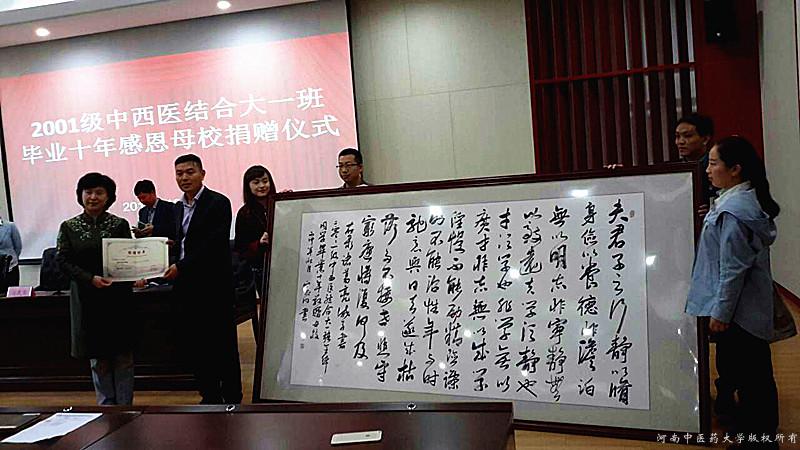 2001级中西医结合大一班
毕业十年感恩母校捐赠仪式
20
夫君子之行静以脩
身俭以养德非澹泊
無以明志非宁静無
以致遠夫学须静也
才须学也非学無以
廣才非志無以成学
淫慢不能励精险躁
则不能治性年与时
驰意与日去遂成枯
落多不接世悲守
穷庐将復何及
右录诸葛亮诫子书
同学毕业十年敬赠母校
河南中医药大学版权所有